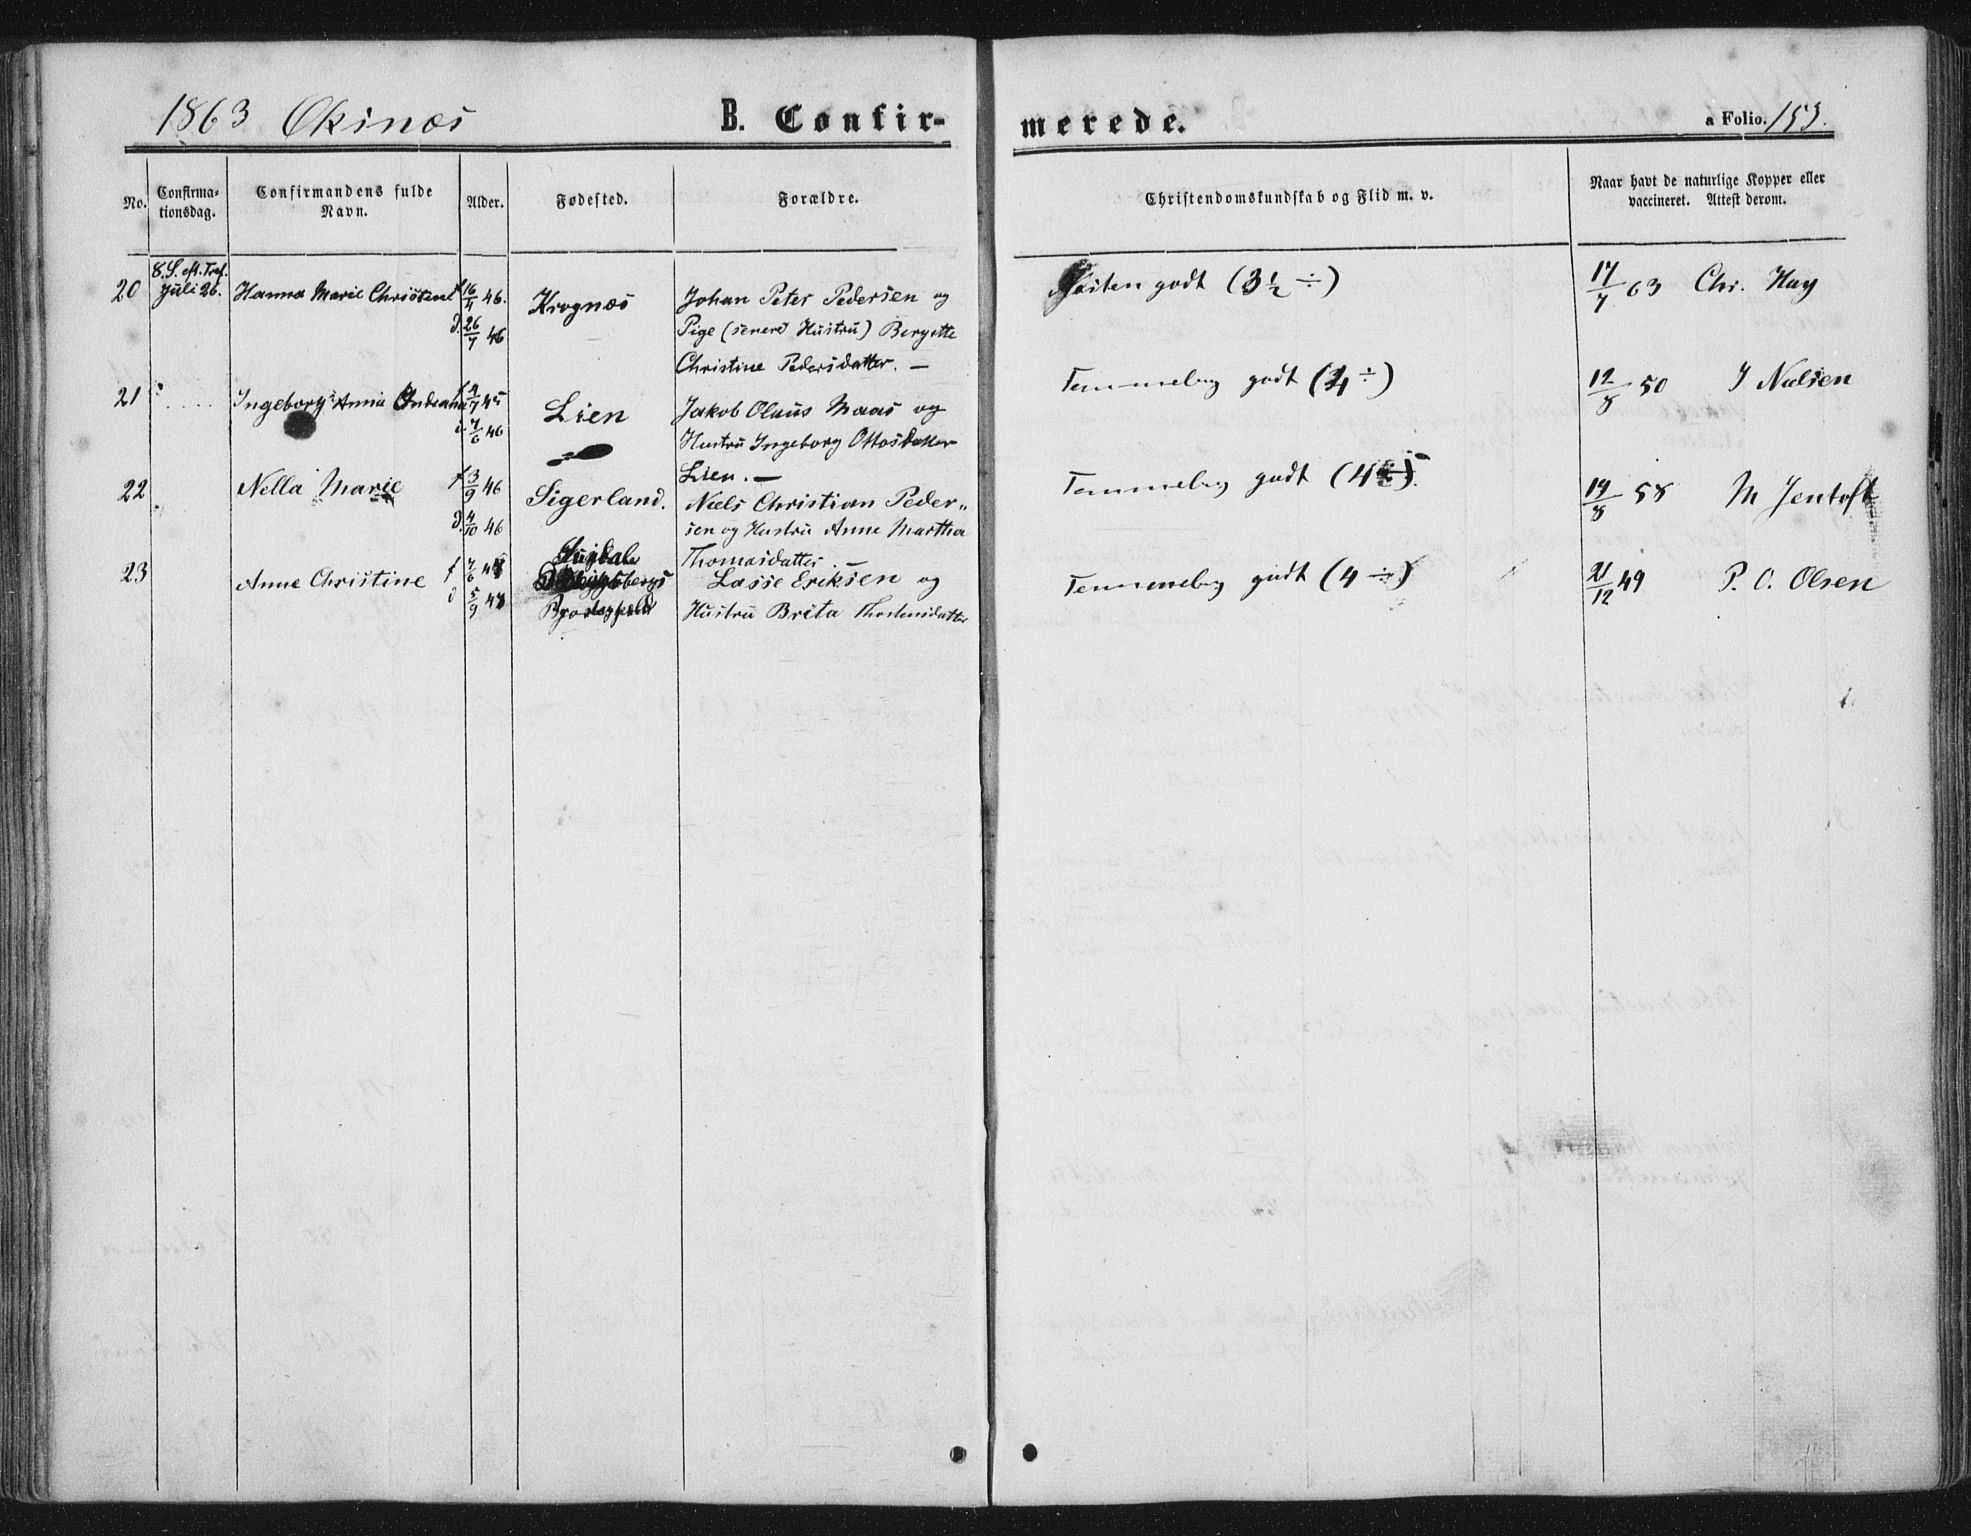 1863 Øksnæs B. Confir- merede. a Folio. 153.
No. Confirma- tionsdag. Confirmandens fulde Navn. Alder. Fødested. Forældre. Christendomskundskab og Flid m. v. Naar havt de naturlige Kopper eller vaccineret. Attest derom.
8. S. eft. Tref.
20 Juli 26. Hanna Marie Christine f 16/4 46. Krognæs Johan Peter Pedersen og godt (3 1/2 ÷) 17/7 63 Chr. Hay
d. 26/7 46 Pige (senere Hustru) Bergitte
Christine Pedersdatter. —
21 Ingeborg Anna f 4/7 45 Lien Jakob Olaus Maas og Temmelig godt (4 ÷) 12/8 50 J Nielsen
d. 7/6 46 Hustru Ingeborg Ottosdatter
Lien. —
22 Nella Marie f 3/9 46 Sigerland. Niels Christian Peder- Temmelig godt 19/8 58 M Jentoft
d. 4/10 46 sen og Hustru Anne Martha
Thomasdatter. —
23 Anne Christine f 7/6 48 Lasse Eriksen og Temmelig godt (4 ÷) 21/12 49 P. O. Olsen
d 5/9 48 Hustru Brita